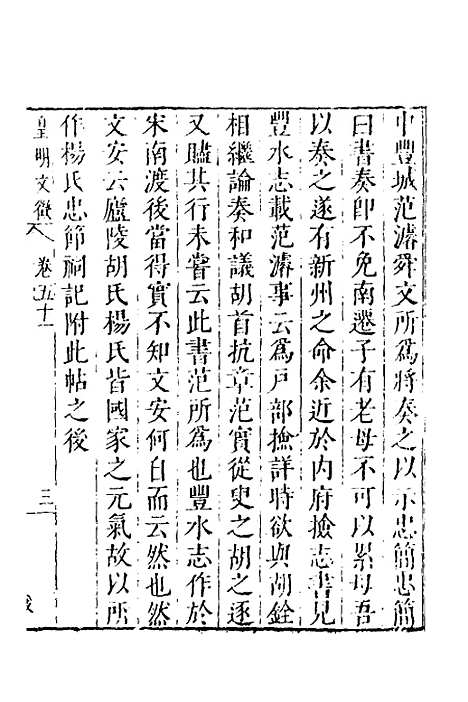 中豐城范濬舜文所爲將奏之以示忠簡忠簡
曰書奏卽不免南遷子有老母不可以累母吾
以奏之遂有新州之命余近於内府撿志書見
豐水志載范濬事云爲戸部撿詳時欲與胡銓
相繼論奏和議胡首抗章范實從臾之胡之逐
又贐其行未嘗云此書范所爲也豐水志作於
宋南渡後當得實不知文安何自而云然也然
文安云廬陵胡氏楊氏皆國家之元氣故以所
作楊氏忠節祠記附此帖之後
皇明文徵 卷五十一 三